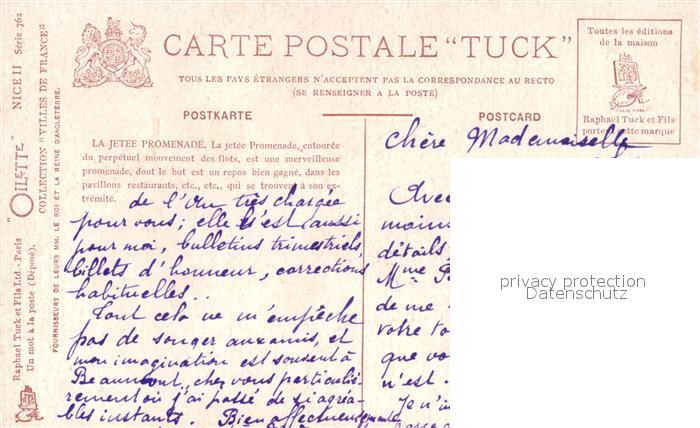 CARTE POSTALE "TUCK"
TOUS LES PAYS ÉTRANGERS N'ACCEPTENT PAS LA CORRESPONDANCE AU RECTO
(SE RENSEIGNER A LA POSTE)
POSTKARTE
POSTCARD
Toutes les éditions
de la maison
Raphaël Tuck et Fils
portent cette marque
Raphaël Tuck et Fils Ltd.-Paris
Un mot à la poste (Déposé).
"OILETTE"
NICE II Série 762
COLLECTION "VILLES DE FRANCE"
FOURNISSEURS DE LEURS MM. LE ROI ET LA REINE D'ANGLETERRE.
LA JETEE PROMENADE. La jetée Promenade, entourée
du perpétuel mouvement des flots, est une merveilleuse
promenade, dont le but est un repos bien gagné, dans les
pavillons restaurants, etc., etc., qui se trouvent à son ex-
trémité.
de l'An très chargée
pour vous; elle s'est aussi
pour moi, bulletins trimestriels,
billets d'honneur, corrections
habituelles..
Tout cela ne m'empêche
pas de songer aux amis, et
mon imagination est souvent à
Beaumont, chez vous particuliè-
rement où j'ai passé de si agréa-
bles instants. Bien affectueusement
Chère Mademoiselle
Avec
moins
détails
Mme
de me
votre
que vo
n'est.
Je n'
privacy protection
Datenschutz